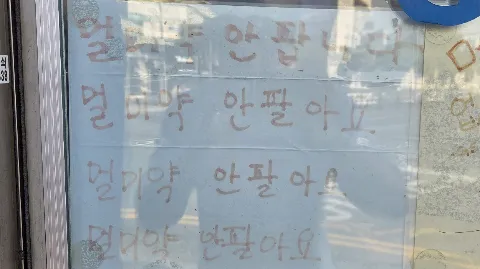 멀미약 안팝니다
멀미약 안팔아요
멀미약 안팔아요
멀미약 안팔아요